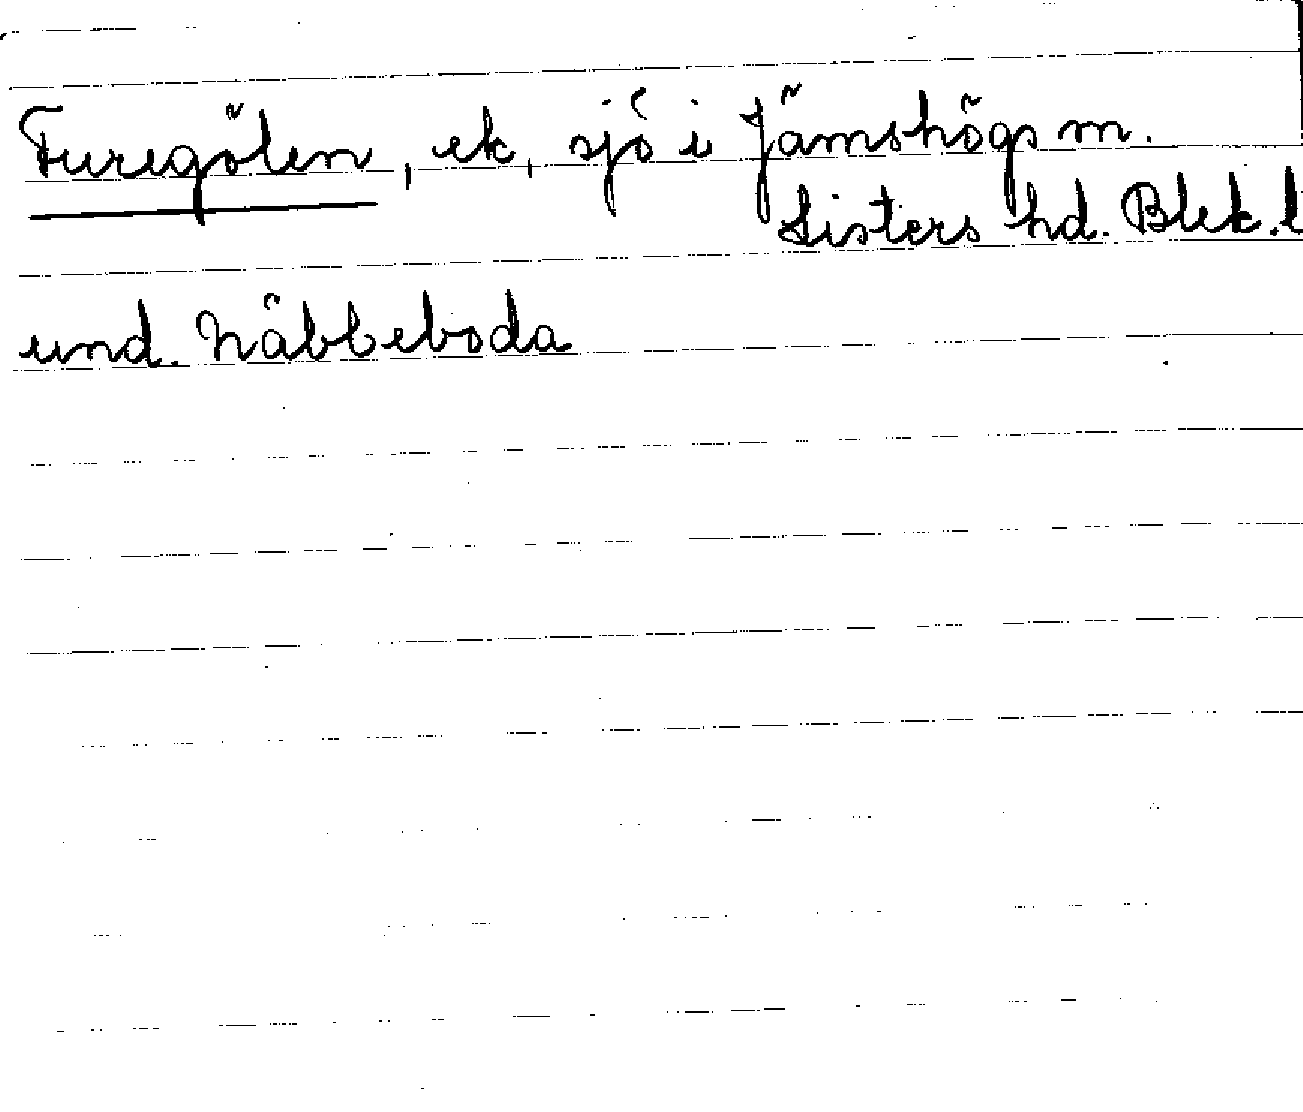 Furegölen, ek, sjö i Jämshögs sn.
Listers hd. Blek. l
und. Näbbeboda